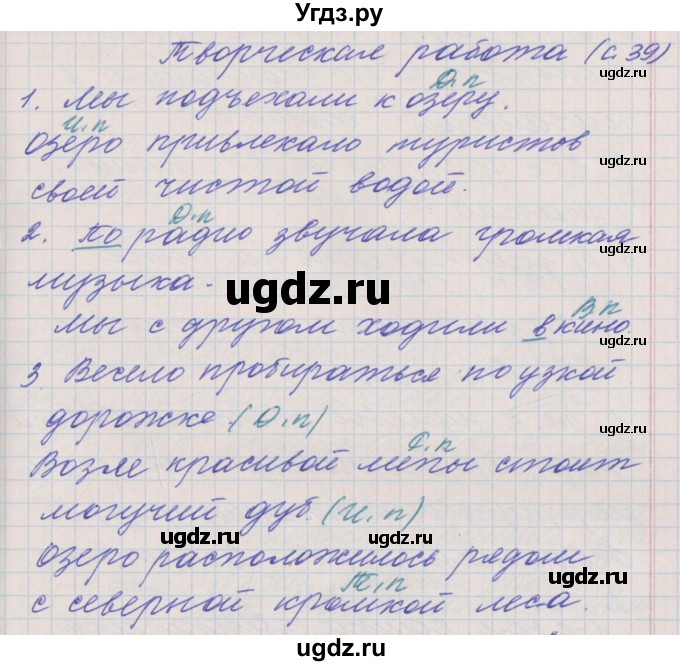 Угдз.ру
Творческая работа (с. 39)
Д.п
1. Мы подъехали к озеру.
И.п
Озеро привлекало туристов
своей чистой водой.
Д.п
2. По радио звучала громкая
музыка.
В п
Мы с другом ходили в кино.
3 Весело пробираться по узкой
дорожке. (Д.п)
Возле красивой липы стоит
могучий дуб. (И.п)
Озеро расположилось рядом
Т.п
с северной кромкой леса.
ugdz.ru
ugdz.ru
ugdz.ru
ugdz.ru
ugdz.ru
ugdz.ru
ugdz.ru
ugdz.ru